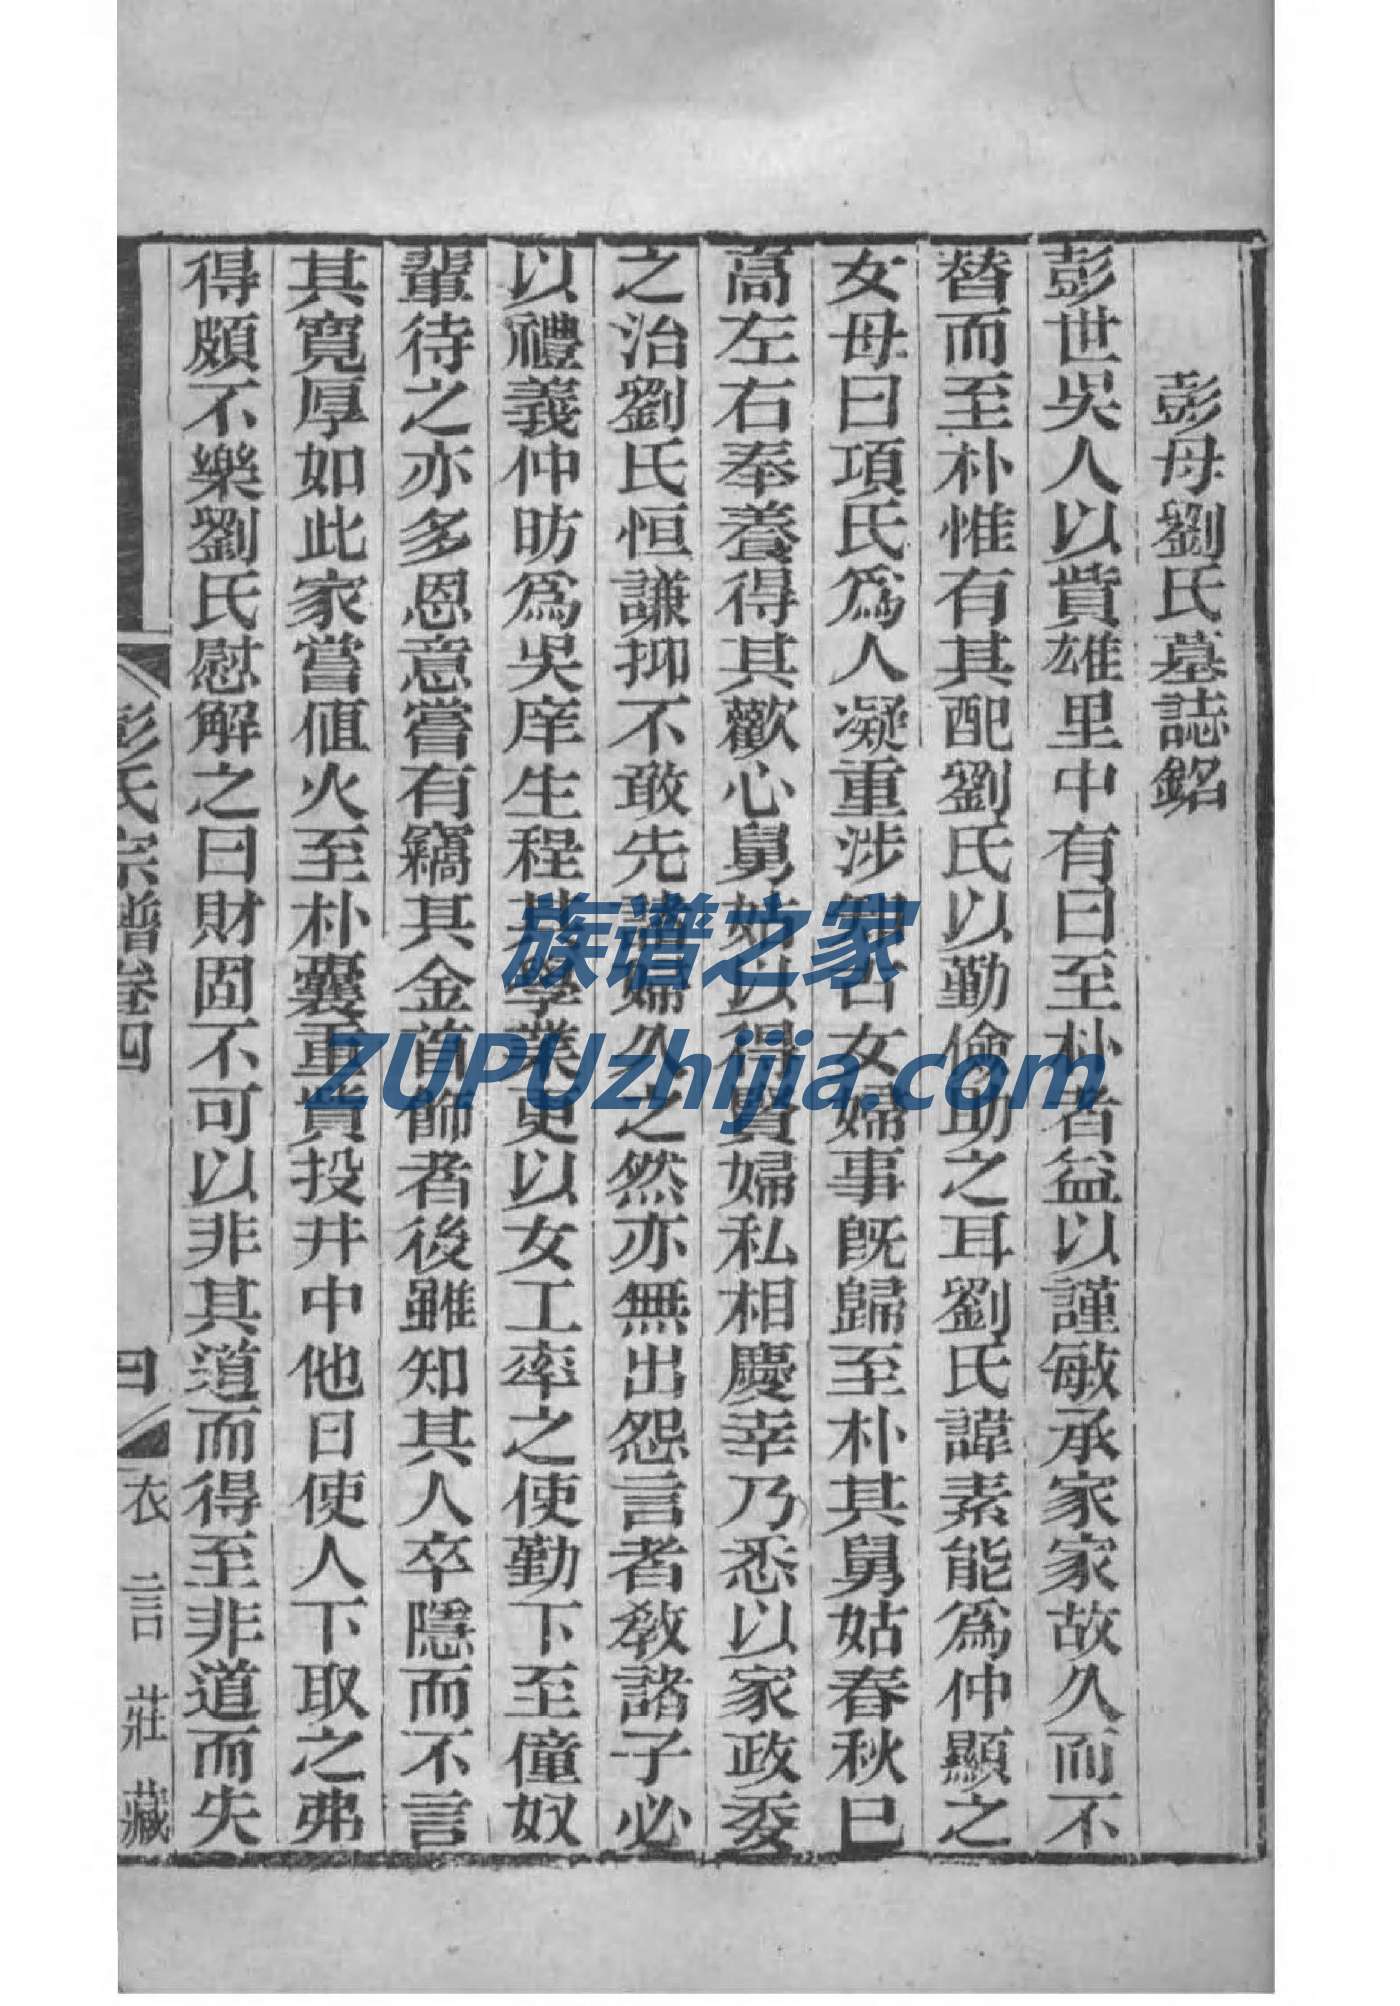 彭母劉氏墓誌銘
彭世吳人以貲雄里中有曰至朴者益以謹敏承家家故久而不
替而至朴惟有其配劉氏以勤儉助之耳劉氏諱素能為仲顯之
女母曰項氏為人凝重涉知古女婦事旣歸至朴其舅姑春秋已
高左右奉養得其歡心舅姑以得賢婦私相慶幸乃悉以家政委
之治劉氏恒謙抑不敢先諸婦久之然亦無出怨言者敎諸子必
以禮義仲昉為吳庠生程其學業更以女工率之使勤下至僮奴
輩待之亦多恩意嘗有竊其金首飾者後雖知其人卒隱而不言
其寬厚如此家嘗值火至朴囊重貲投井中他日使人下取之弗
得頗不樂劉氏慰解之曰財固不可以非其道而得至非道而失
彭氏宗譜卷四
衣言莊藏
族谱之家
ZUPUzhijia.com